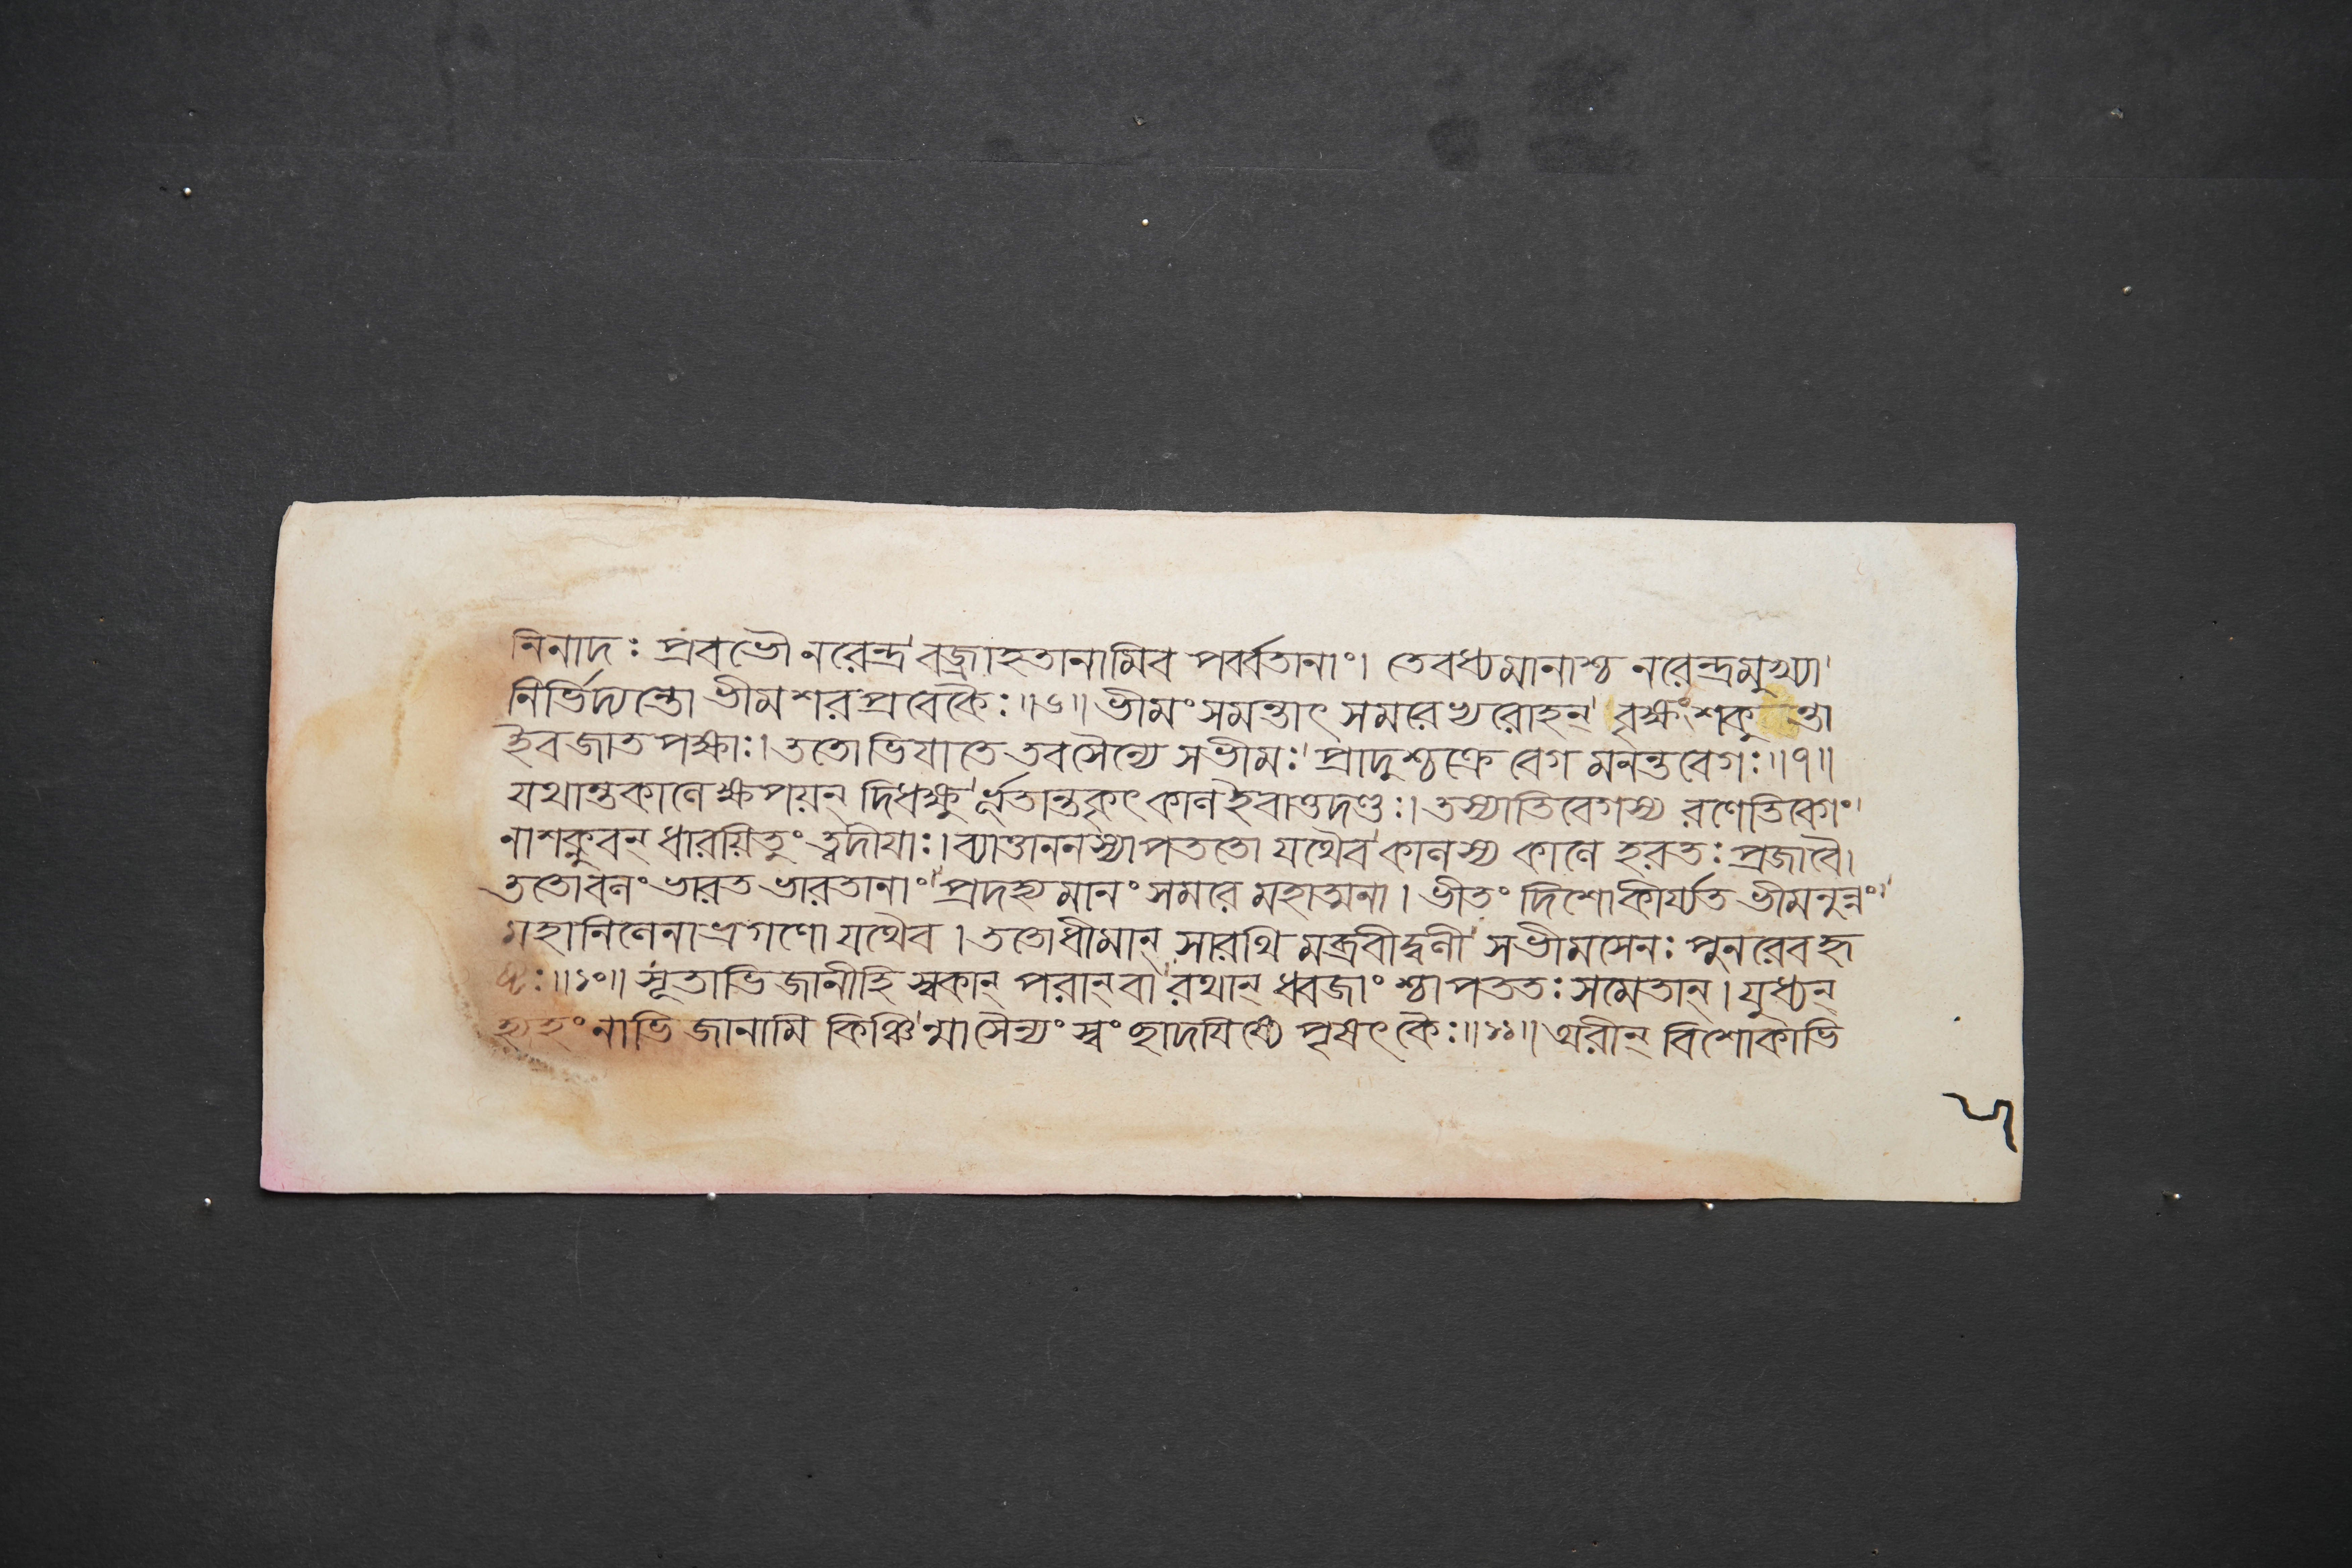 নিনাদঃ প্রবভৌ নরেন্দ্র' বজ্রাহতানামিব পর্ব্বতানাং। তেবধ্যমানাশ্চ নরেন্দ্রমুখ্যা'
নির্ভিদ্যন্তো ভীমশরপ্রবেকৈঃ॥৬॥ ভীমং সমন্তাৎ সমরেখরোহন্' বৃক্ষং শকু ন্তা
ইব জাতপক্ষাঃ। ততোভিযাতে তবসৈন্যে সভীমঃ' প্রাদুশ্চক্রে বেগ মনন্তবেগঃ॥৭॥
যথান্তকালে ক্ষপয়ন্ দিধক্ষু' র্ভূতান্তকৃৎ কাল ইবাত্তদণ্ডঃ। তস্যাতিবেগস্য রণেতিবেগং'
নাশক্নুবন্ ধারয়িতুং ত্বদীয়াঃ। ব্যাত্তাননস্যাপততো যথৈব' কালস্য কালে হরতঃ প্রজাবৈ।
ততোবলং ভারত ভারতানাং" প্রদহ্যমানং সমরে মহাত্মনা। ভীতং দিশোকীর্য্যত ভীমনুন্নং"
মহানিলেনাভ্রগণো যথৈব। ততোধীমান্ সারথি মব্রবীদ্বলী' সভীমসেনঃ পুনরেবহৃ
ষ্টঃ॥১০॥ সূতাভিজানীহি স্বকান্ পরান্ বা' রথান্ ধ্বজাংশ্চাপততঃ সমেতান্। যুধ্যন্
হ্যহং নাভিজানামি কিঞ্চি' ন্মাসৈন্যং স্বং ছাদযিষ্যে পৃষৎকৈঃ॥১১॥ অরীন্ বিশোকাভি